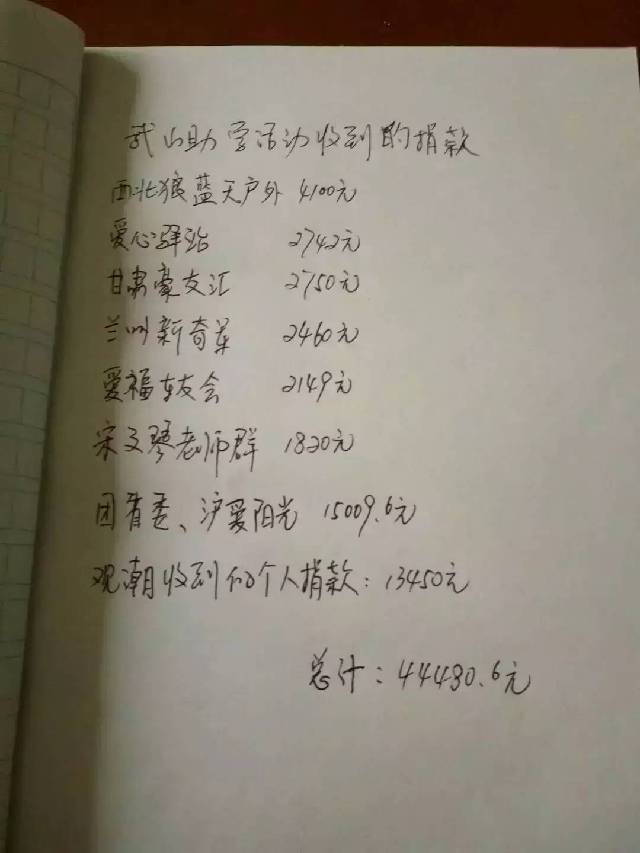 武山助学活动收到的捐款
西北狼蓝天户外 4100元
爱心驿站 2742元
甘肃豪友汇 2750元
兰州新奇军 2460元
爱福车友会 2149元
宋文琴老师群 1820元
团省委、沪爱阳光 15009.6元
观潮收到的个人捐款：13450元
总计：44480.6元